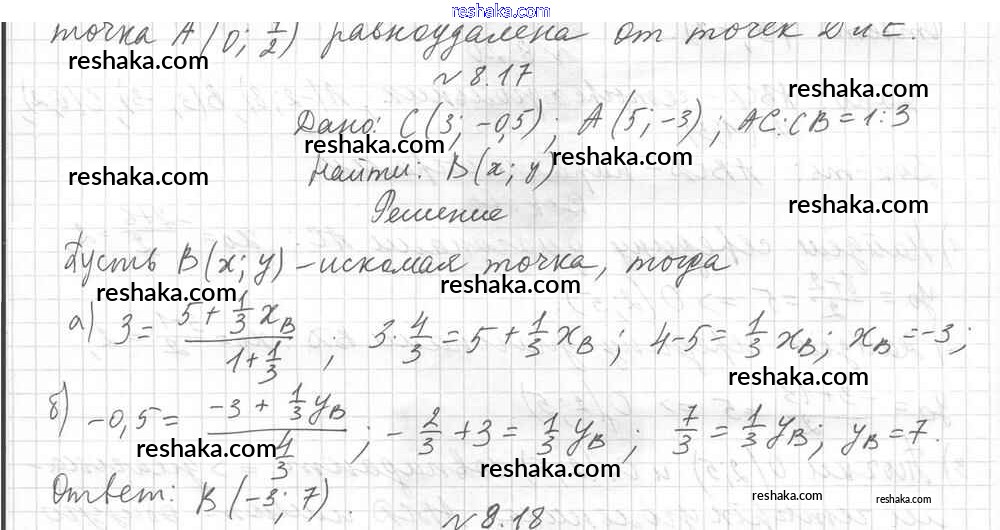 reshaka.com
точка A(0; 7/2) равноудалена от точек D и C.
reshaka.com
№ 8.17
reshaka.com
Дано: C(3; -0,5); A(5; -3); AC:CB = 1:3
reshaka.com reshaka.com
Найти: B(x; y)
reshaka.com reshaka.com
Решение
Пусть B(x; y) - искомая точка, тогда
reshaka.com reshaka.com
а) 3 = (5 + 1/3 x_B)/(1 + 1/3); 3·4/3 = 5 + 1/3 x_B; 4-5 = 1/3 x_B; x_B = -3;
reshaka.com
б) -0,5 = (-3 + 1/3 y_B)/(4/3); -2/3 + 3 = 1/3 y_B; 7/3 = 1/3 y_B; y_B = 7.
reshaka.com reshaka.com
Ответ: B(-3; 7).
reshaka.com reshaka.com
№ 8.18